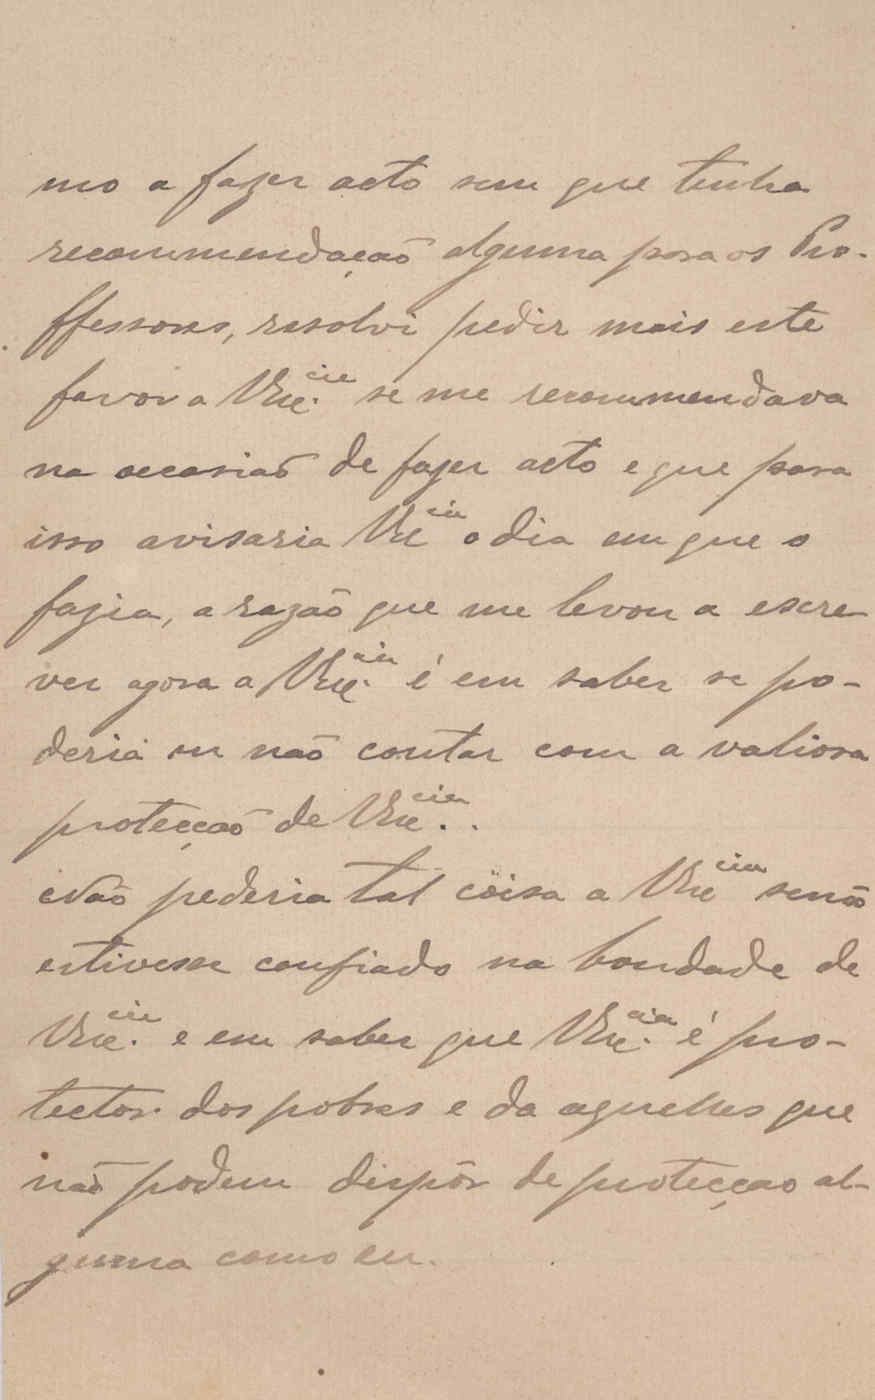 mo a fazer acto sem que tenha
recommendação alguma para os Pro-
ffessores, resolvi pedir mais este
favor a VExc.cia se me recommendava
na occasião de fazer acto e que para
isso avisaria VExcia o dia em que o
fazia, a razão que me levou a escre-
ver agora a VExc.cia é em saber se po-
deria ou não contar com a valiosa
protecção de VExcia..
Não pederia tal coisa a VExcia senão
estivesse confiado na bondade de
VExc.cia e em saber que VExc.cia é pro-
tector dos pobres e da aquelles que
não podem dispôr de protecçao al-
guma como eu.